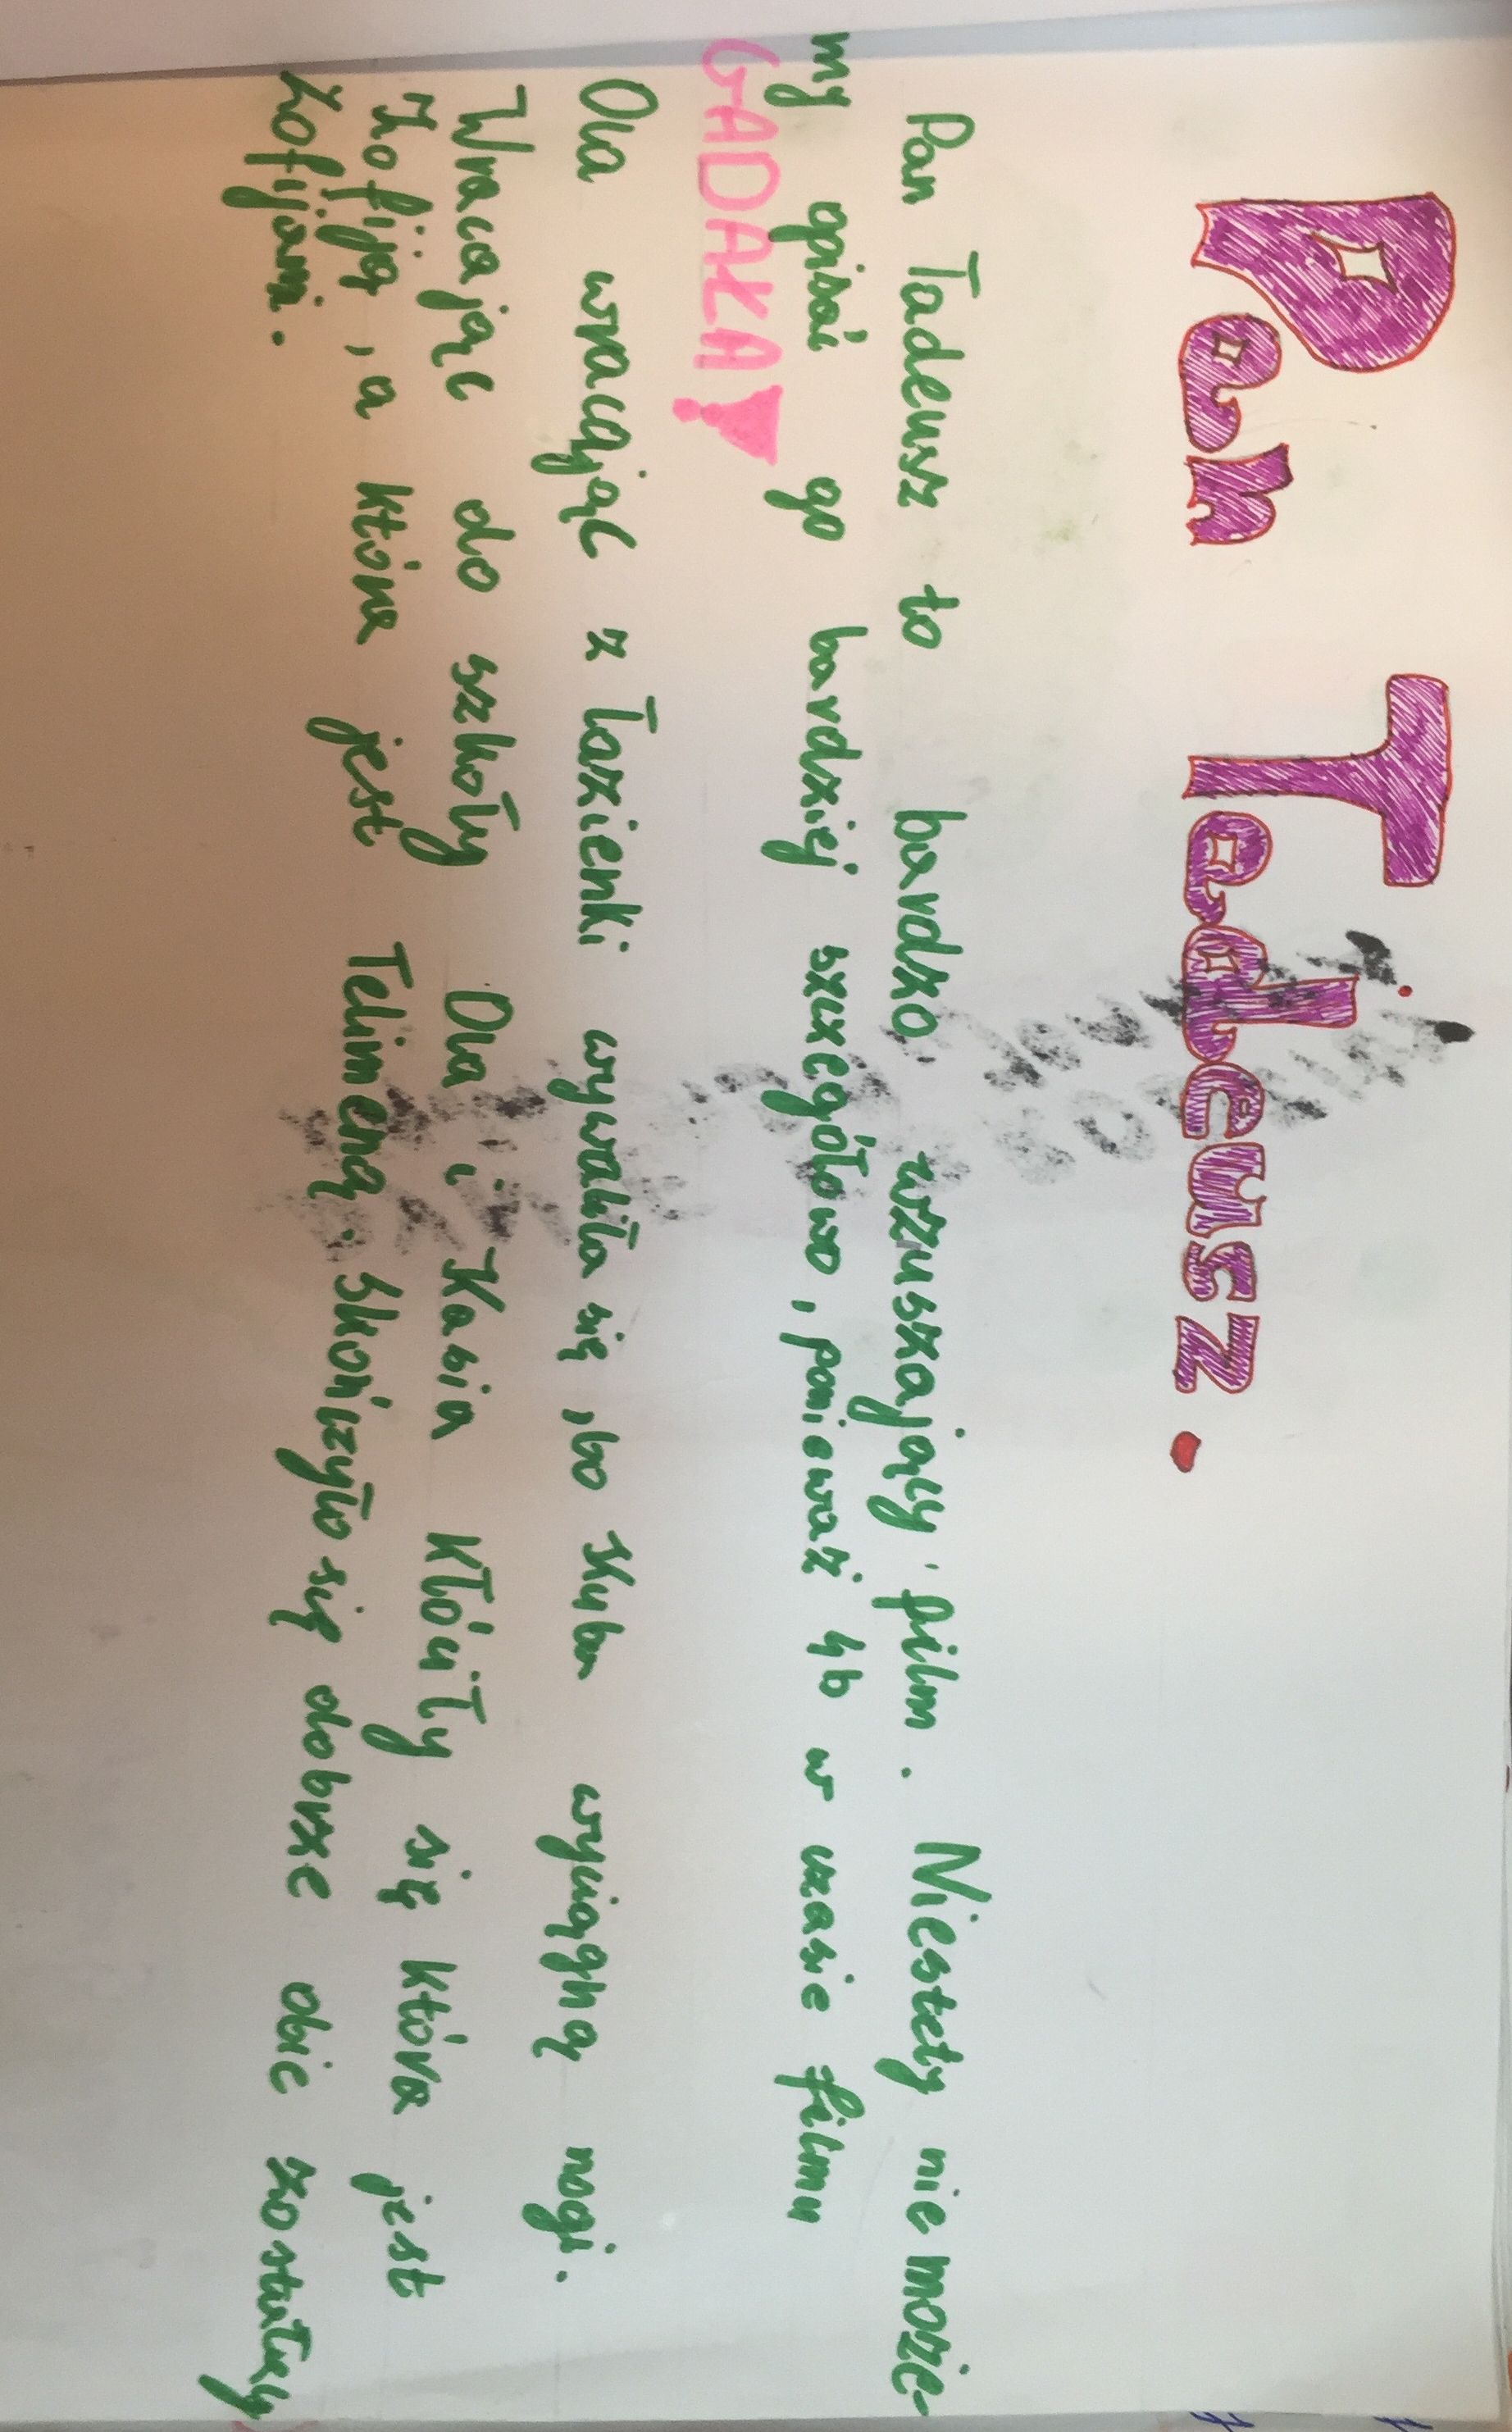 Pan Tadeusz.
Pan Tadeusz to bardzo wzuszający film. Niestety nie może-
my opisać go bardziej szczegółowo, ponieważ 4b w czasie filmu
GADAŁA!
Ola wracając z łazienki wywaliła się, bo Kuba wyciągną nogi.
Wracając do szkoły Ola i Kasia kłóciły się która jest
Zofiją, a która jest Telimeną. Skończyło się dobrze obie zostały
Zofijami.